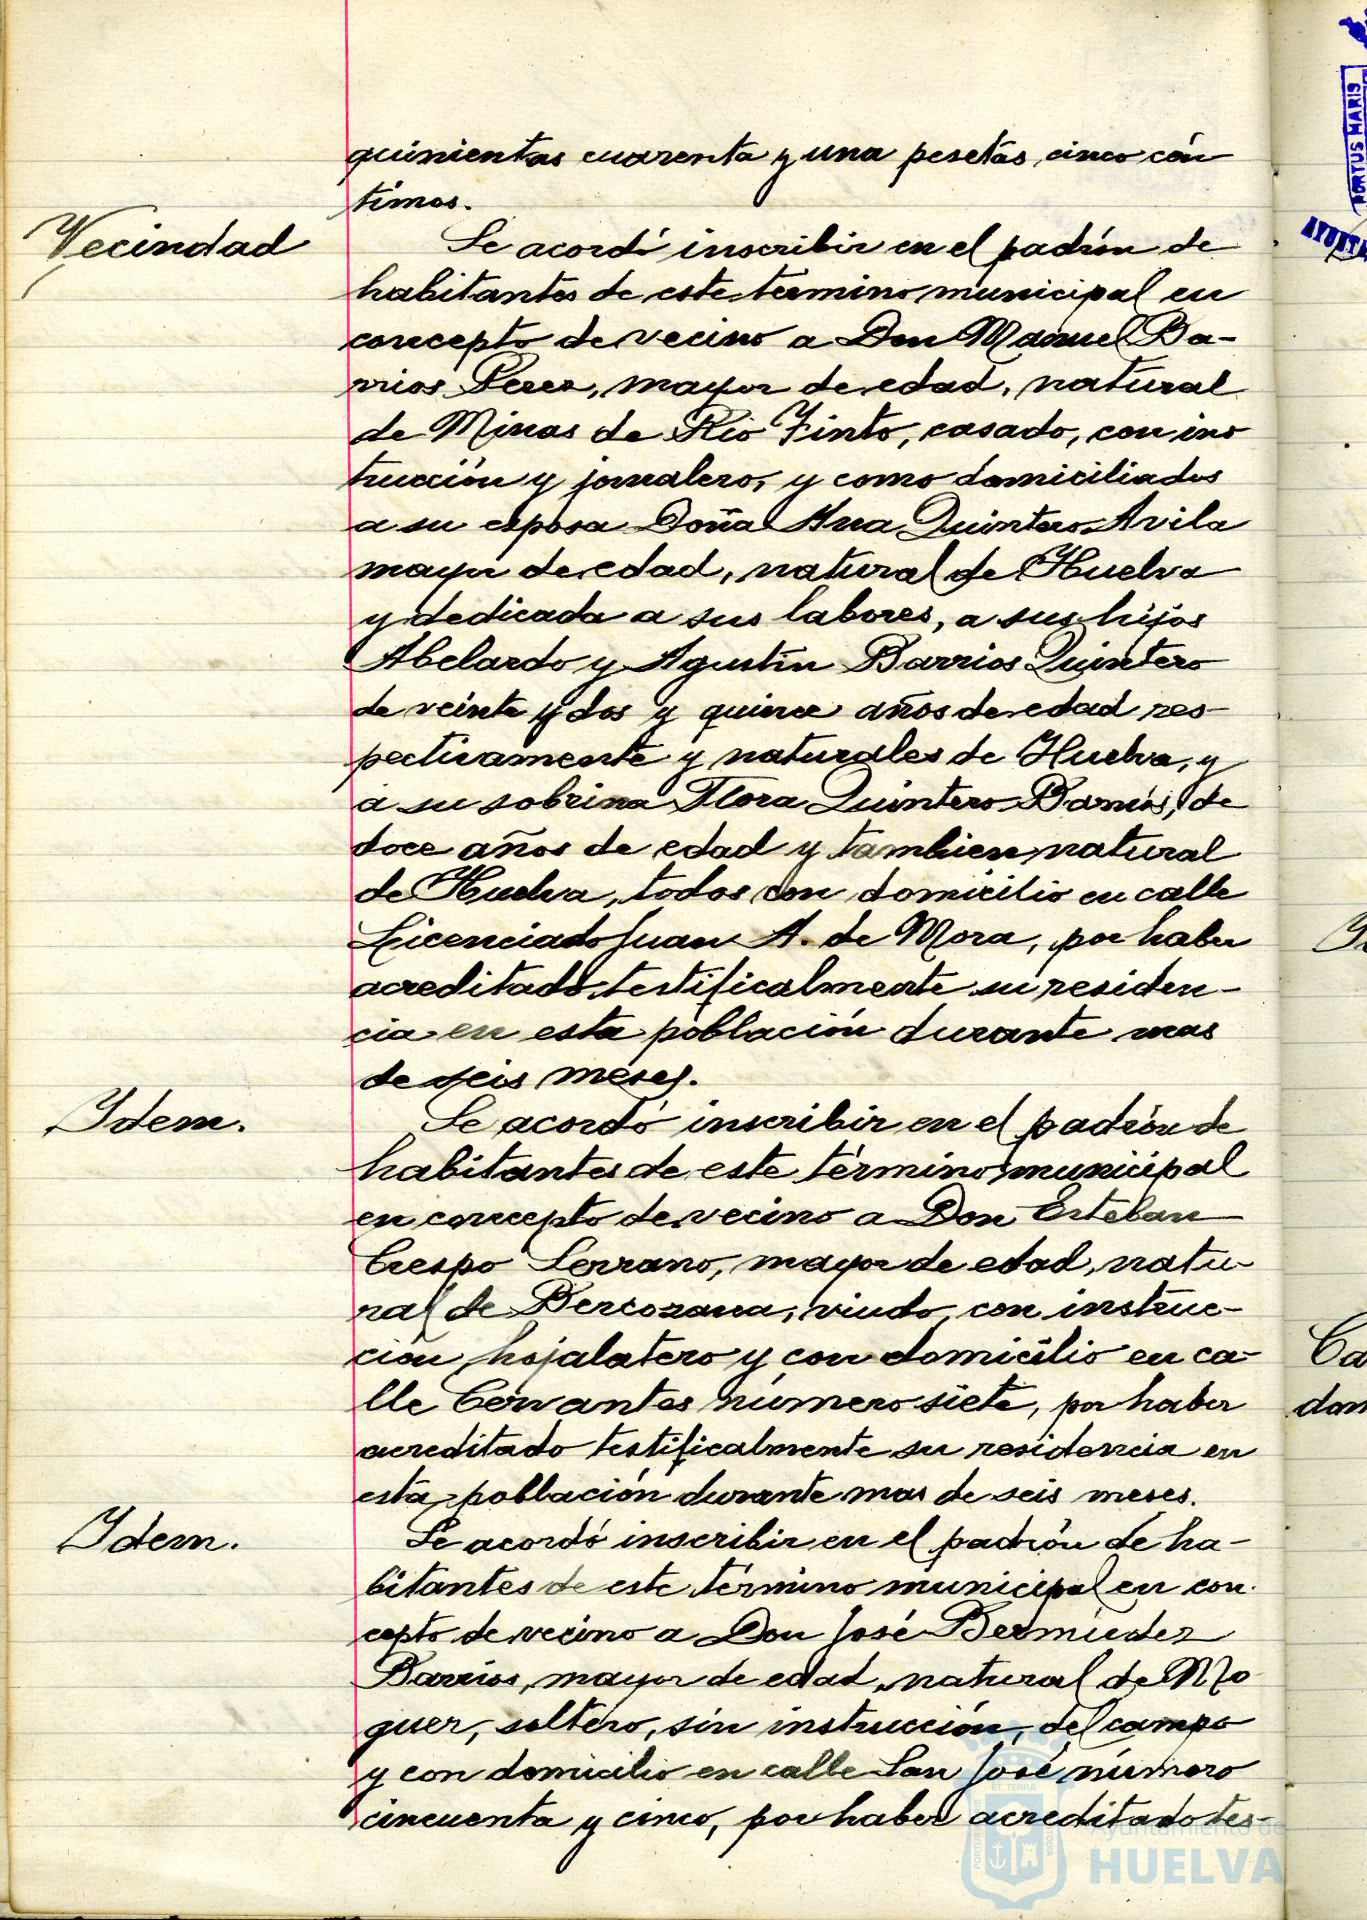 quinientas cuarenta y una pesetas cinco cén
timos.
Vecindad
Se acordó inscribir en el padrón de
habitantes de este término municipal en
concepto de vecino a Don Manuel Ba-
rrios Perez, mayor de edad, natural
de Minas de Rio Tinto, casado, con ins
trucción y jornalero, y como domiciliados
a su esposa Doña Ana Quintero Avila
mayor de edad, natural de Huelva
y dedicada a sus labores, a sus hijos
Abelardo y Agustín Barrios Quintero
de veinte y dos y quince años de edad res-
pectivamente y naturales de Huelva, y
a su sobrina Flora Quintero Barrios, de
doce años de edad y tambien natural
de Huelva, todos con domicilio en calle
Licenciado Juan A. de Mora, por haber
acreditado testificalmente su residen-
cia en esta población durante mas
de seis meses.
Idem.
Se acordó inscribir en el padrón de
habitantes de este término municipal
en concepto de vecino a Don Esteban
Crespo Serrano, mayor de edad, natu-
ral de Bercozana, viudo, con instruc-
ción, hojalatero y con domicilio en ca-
lle Cervantes número siete, por haber
acreditado testificalmente su residencia en
esta población durante mas de seis meses.
Idem.
Se acordó inscribir en el padrón de ha-
bitantes de este término municipal en con
cepto de vecino a Don José Bermúdez
Barrios, mayor de edad, natural de Mo
guer, soltero, sin instrucción, del campo
y con domicilio en calle San José número
cincuenta y cinco, por haber acreditado tes-
PORTUS MARIS
Ca
dan
Ayuntamiento de
HUELVA